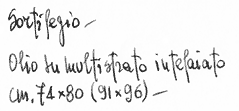 Sortilegio –
Olio su multistrato intelaiato
cm. 74×80 (91×96) –